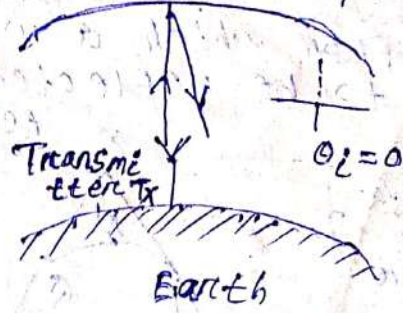 Transmi
tter Tx
θi = 0
Earth